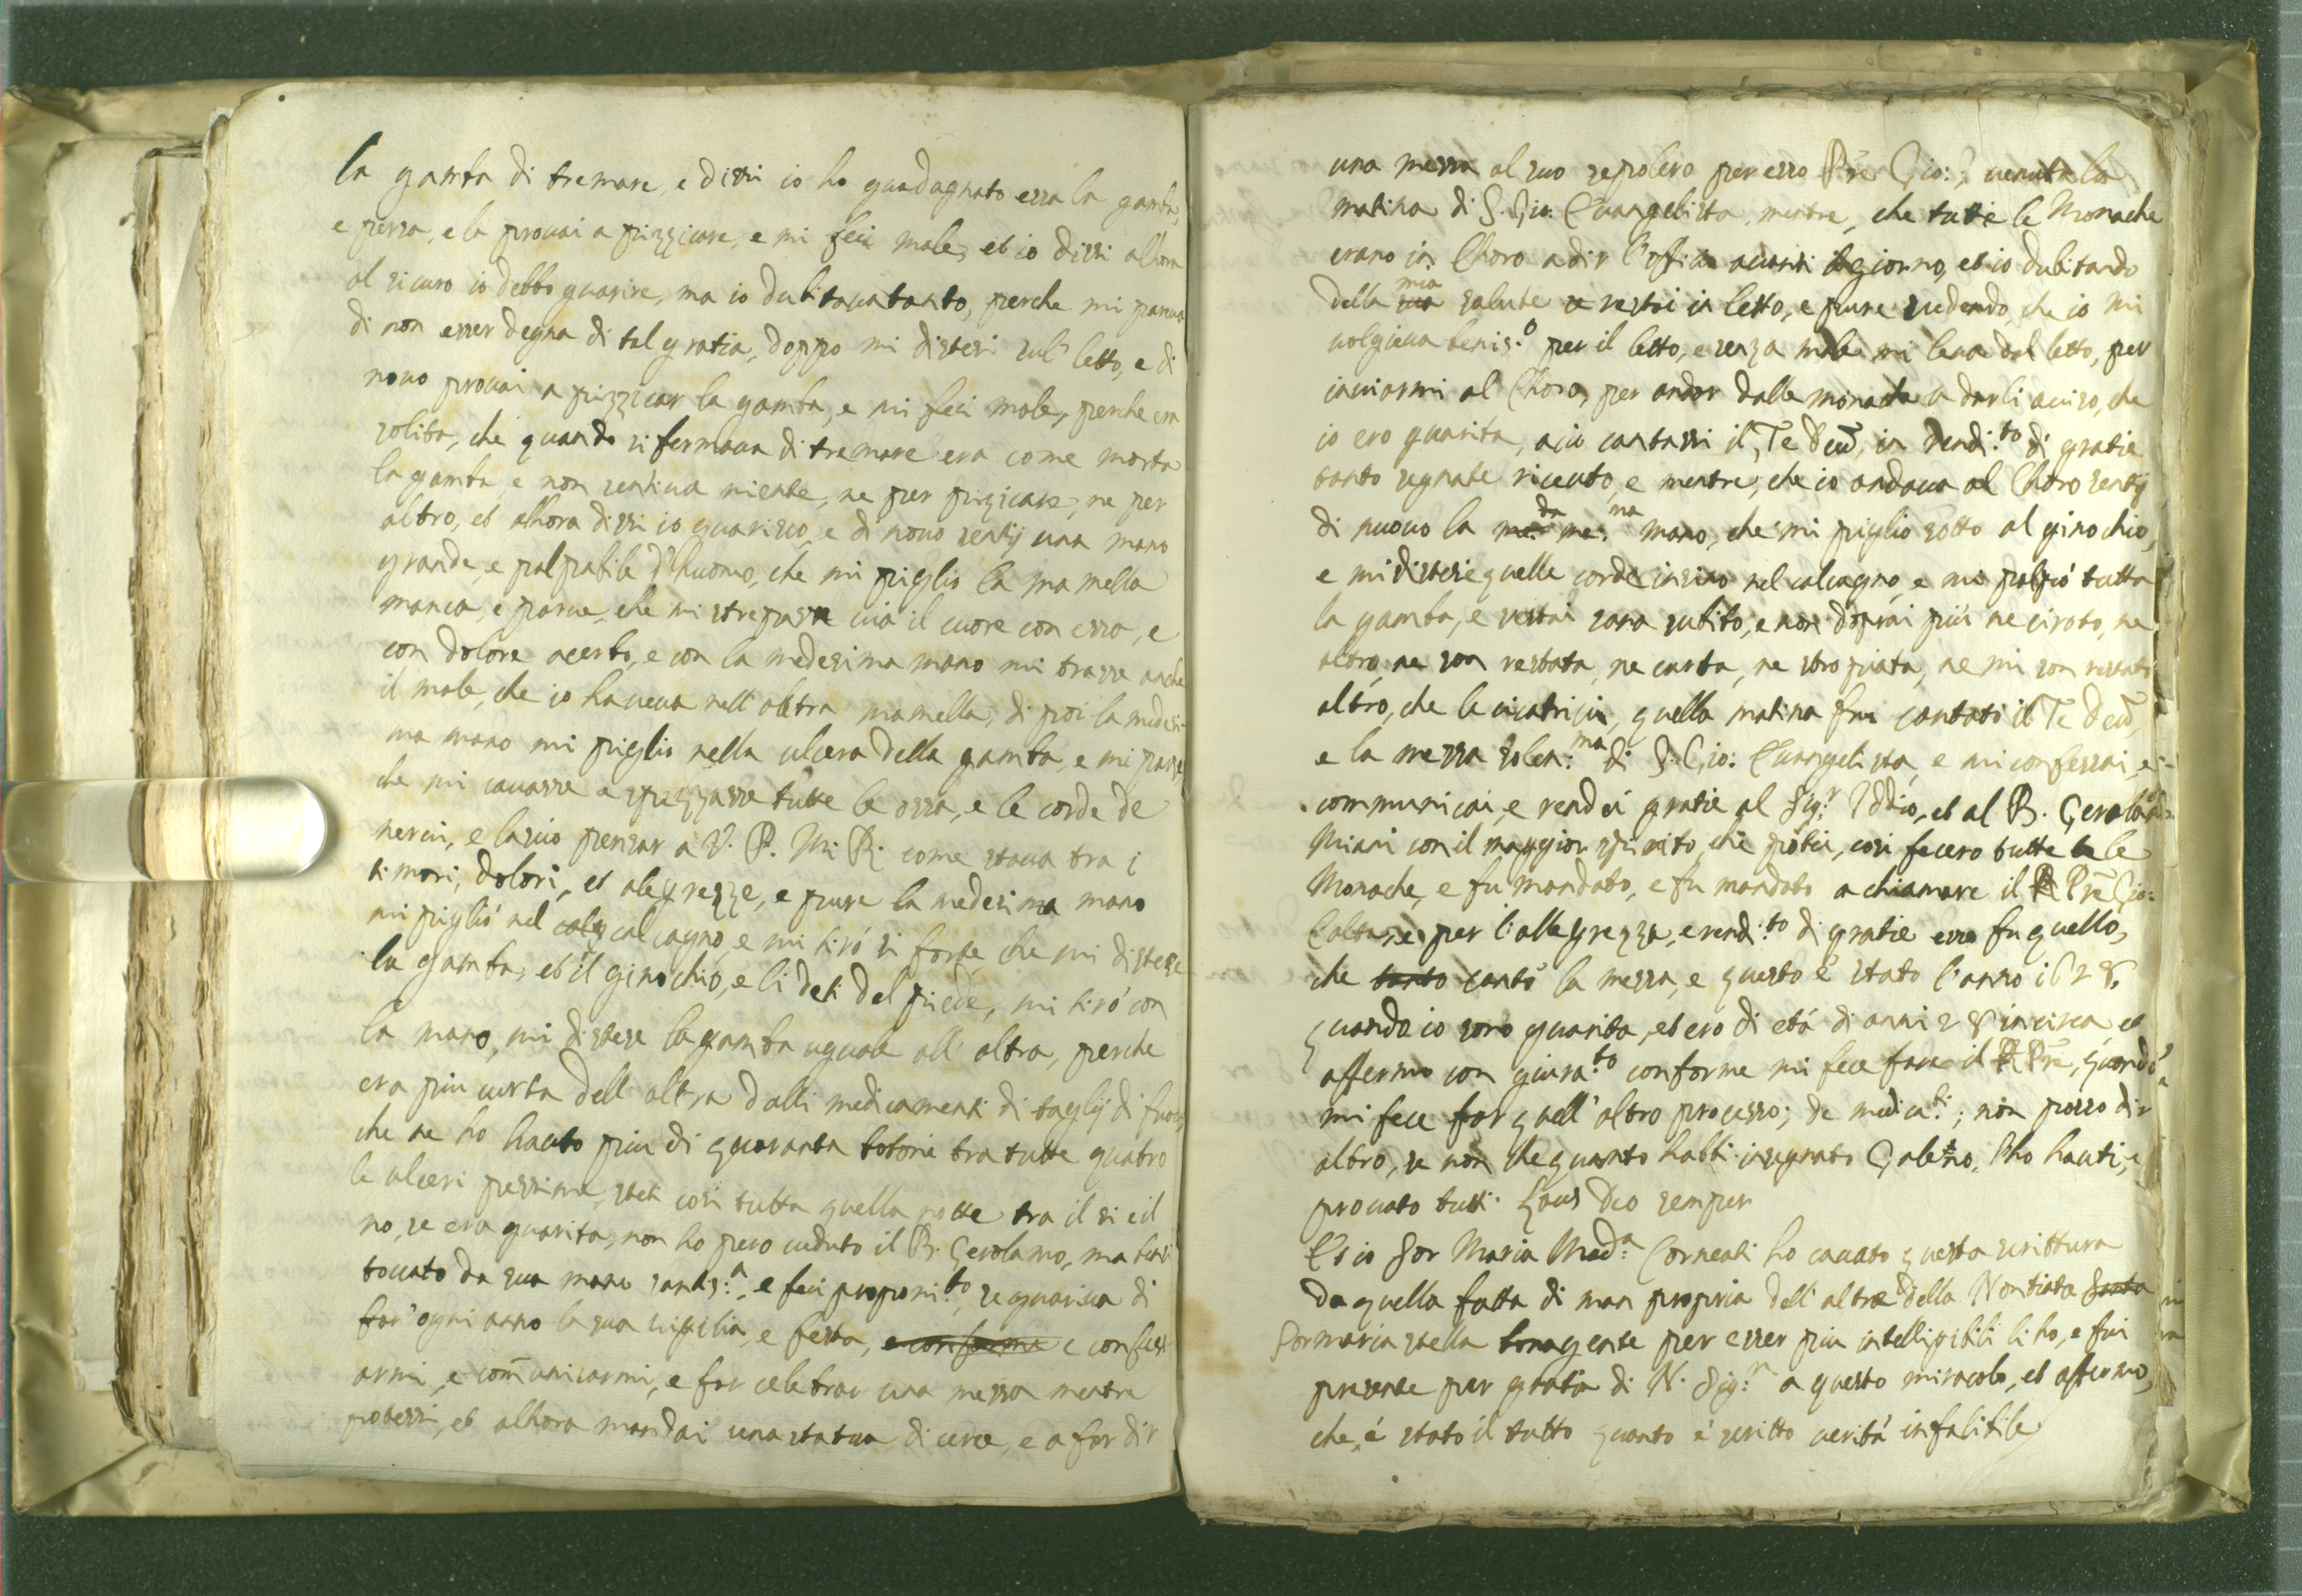 la gamba di tremare, e dissi io ho guadagnato essa la gamba,
e persa, e la provai a pizzicare, e mi feci male, et io dissi allhora
al sicuro io debbo guarire, ma io dubitava tanto, perche mi pareva
di non esser degna di tal gratia, doppo mi distesi sul' letto, e di
novo provai a pizzicar la gamba, e mi feci male, perche era
solita, che quando si fermava di tremare era come morta
la gamba, e non sentiva niente, ne per pizicare, ne per
altro, et alhora dissi io guarisco, e di novo sentij una mano
grande, e palpabile d'huomo, che mi piglio la mamella
manca, e parve, che mi strepasse via il cuore con essa, e
con dolore acerbo, e con la medesima mano mi trasse anche
il male, che io haveva nell' altra mamella, di poi la medesi-
ma mano mi piglio nella ulcera della gamba, e mi parse,
che mi cavasse e spezzasse tutte le ossa, e le corde de
nervi, e lascio pensar a V. P. M. R. come stava tra i
timori, dolori, et alegrezze, e pure la medesima mano
mi pigliò nel calcagno, e mi tirò si forte, che mi distese
la gamba, et il ginochio, e li deti del piede, mi tirò con
la mano, mi distese la gamba uguale all' altra, perche
era piu curta dell' altra dalli medicamenti di taglij di fuoco,
che ne ho hauto piu di quaranta botoni tra tutte quatro
le ulceri pessime, steti cosi tutta quella notte tra il si e il
no, se era guarita, non ho pero veduto il B. Gerolamo, ma
toccato da sua mano santis:ª, e feci proponi:to, se guariva di
far' ogni anno la sua vigilia, e festa, e confess
armi, e com̃unicarmi, e far celebrar una messa mentre
potessi, et alhora mandai una statua di cera, e a far dir
una messa al suo sepolcro per esso Prẽ Gio:, venuta la
matina di S. Gio. Evangelista, mentre, che tutte le Monache
erano in Choro a dir l'officio avanti il giorno, et io dubitando
della sua mia salute restai in letto, e pure vedendo, che io mi
volgieva benis:º per il letto, e senza male mi levai dal letto, per
inviarmi al Choro, per andar dalle monache a darli aviso, che
io ero guarita, acio cantassi il Te Deũ, in rendi:to di gratie
tanto segnate ricevuto, e mentre, che io andava al Choro sentij
di nuovo la med:ma mano, che mi piglio sotto al ginochio,
e mi distese quelle corde insino nel calcagno, e mi palpò tutta
la gamba, e restai sana subito, e non doprai più ne ciroto, ne
altro, ne son restata, ne curta, ne stropiata, ne mi son restati
altro, che le cicatrici, quella matina fu cantato il Te Deũ,
e la messa solen:ma di S. Gio: Evangelista, e mi confessai, e
communicai, e rendei gratie al Sig:r Iddio, et al B. Gerolamo
Miani con il maggior spirito, che potei, cosi fecero tutte le
Monache, e fu mandato, e fu mandato a chiamare il Prẽ Gio:
per l'allegrezza, e rendi:to di gratie esso fu quello,
che tanto cantò la messa, e questo è stato l'anno 1628
quando io sono guarita, et ero di età di anni 28 in circa et
affermo con giura:to conforme mi fece fare il Prẽ, quando
mi fece far quell' altro processo; de medica:ti; non posso dir
altro, se non che quanto habbi insegnato Galeno, l'ho hauti, e
provato tutti. Laus Deo semper
Et io Sor Maria Mad:ª Corneati ho cavato questa scrittura
da quella fatta di man propria dell' altra della Nontiata
Sor maria stella per esser piu intelligibili li ho, e fui
presente per gratia di N. Sig:r a questo miracolo, et affermo,
che, è stato il tutto quanto è scritto verità infalibile